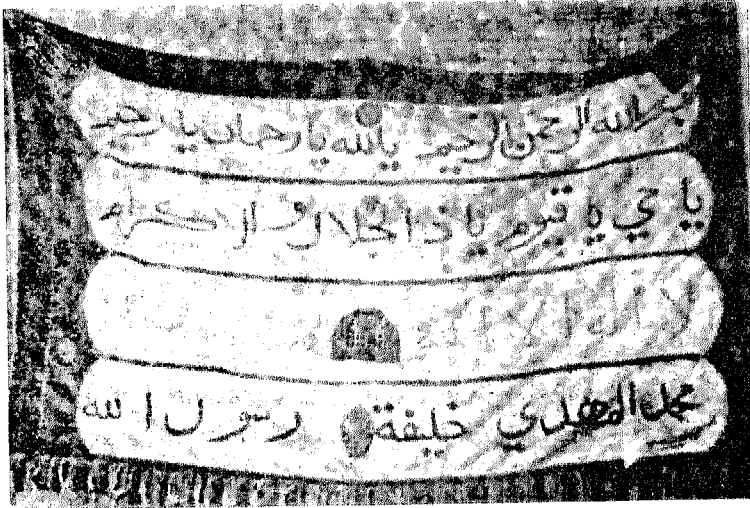 بسم الله الرحمن الرحيم يالله يا رحمان يا رحيم
يا حي يا قيوم يا ذا الجلال والاكرام
لا اله الا الله
محمد المهدي خليفة رسول الله